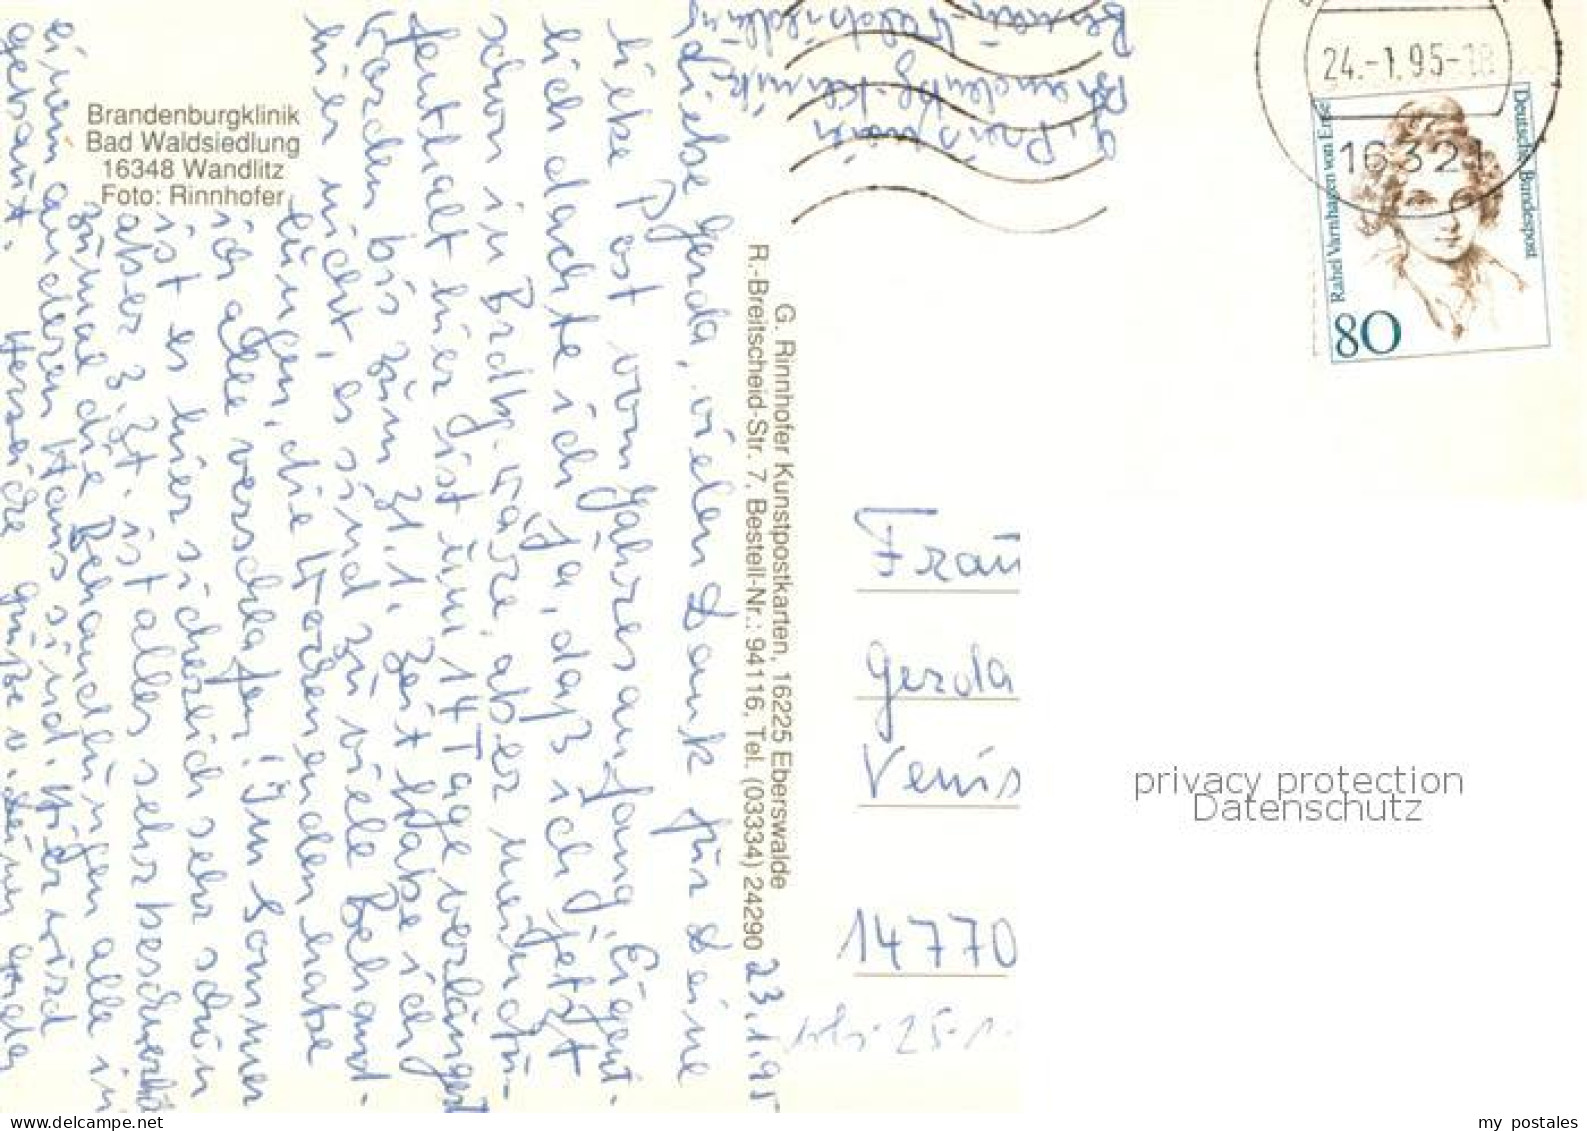 Brandenburgklinik
Bad Waldsiedlung
16348 Wandlitz
Foto: Rinnhofer
G. Rinnhofer Kunstpostkarten, 16225 Eberswalde
R.-Breitscheid-Str. 7, Bestell-Nr.: 94116, Tel. (03334) 24290
23.1.95
Liebe Gerda, vielen Dank für Deine
liebe Post vom Jahresanfang. Eigent-
lich dachte ich ja, daß ich jetzt
schon in Brdbg. wäre, aber mein Au-
fenthalt hier ist um 14 Tage verlängert
worden bis zum 31.1. Zeit habe ich
hier nicht, es sind zu viele Behand-
lungen, die Wochenenden habe
ich alle verschlafen! Im Sommer
ist es hier sicherlich sehr schön
aber z.Zt. ist alles sehr beschwerlich
zumal die Behandlungen alle in
einem anderen Haus sind. Hier wird
gebaut. Herzliche Grüße v.
Brandenbg. Klinik
Bernau-Waldsiedlung
24.-1.95-18
16321
Deutsche Bundespost
Rahel Varnhagen von Ense
80
Frau
Gerda
Venis
14770
25.1.
privacy protection
Datenschutz
my postales